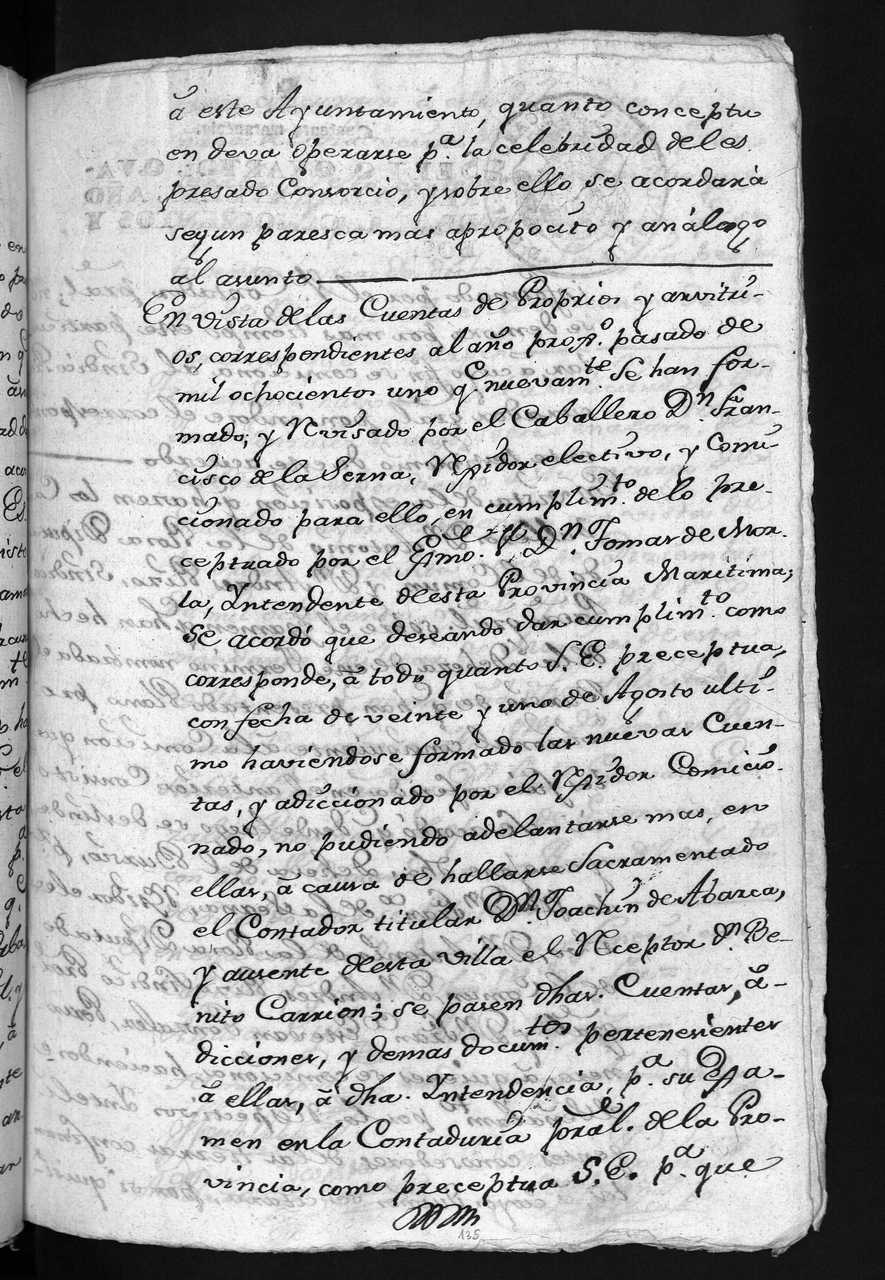 â este Ayuntamiento, quanto conceptu
en deva operarse p.ª la celebridad del es
presado Consorcio, y sobre ello se acordará
segun paresca mas apropocito y análogo
al asunto
En vista de las Cuentas de Proprios y arvitri-
os, correspondientes al año prox.º pasado de
mil ochocientos uno q. nuevam.te se han for-
mado, y Revisado por el Caballero D.n Fran-
cisco de la Serna, Rexidor electivo, y Comi-
cionado para ello, en cumplim.to de lo pre-
ceptuado por el Exmo. S.r D.n Tomas de Mor-
la, Yntendente desta Provincia Maritima;
se acordó que deseando dar cumplim.to como
corresponde, â todo quanto S. E. preceptua,
con fecha de veinte y uno de Agosto ulti-
mo haviendose formado las nuevas Cuen-
tas, y adiccionado por el Rexidor Comicio-
nado, no pudiendo adelantarse mas, en
ellas, â causa de hallarse Sacramentado
el Contador titular D.n Joachin de Abarca,
y ausente desta villa el Receptor D.n Be-
nito Carrion; se pasen dhas. Cuentas, â-
dicciones, y demas docum.tos pertenesientes
â ellas, â dha. Yntendencia, p.ª su Exa-
men en la Contaduria pral. de la Pro-
vincia, como preceptua S. E. p.ª que
135